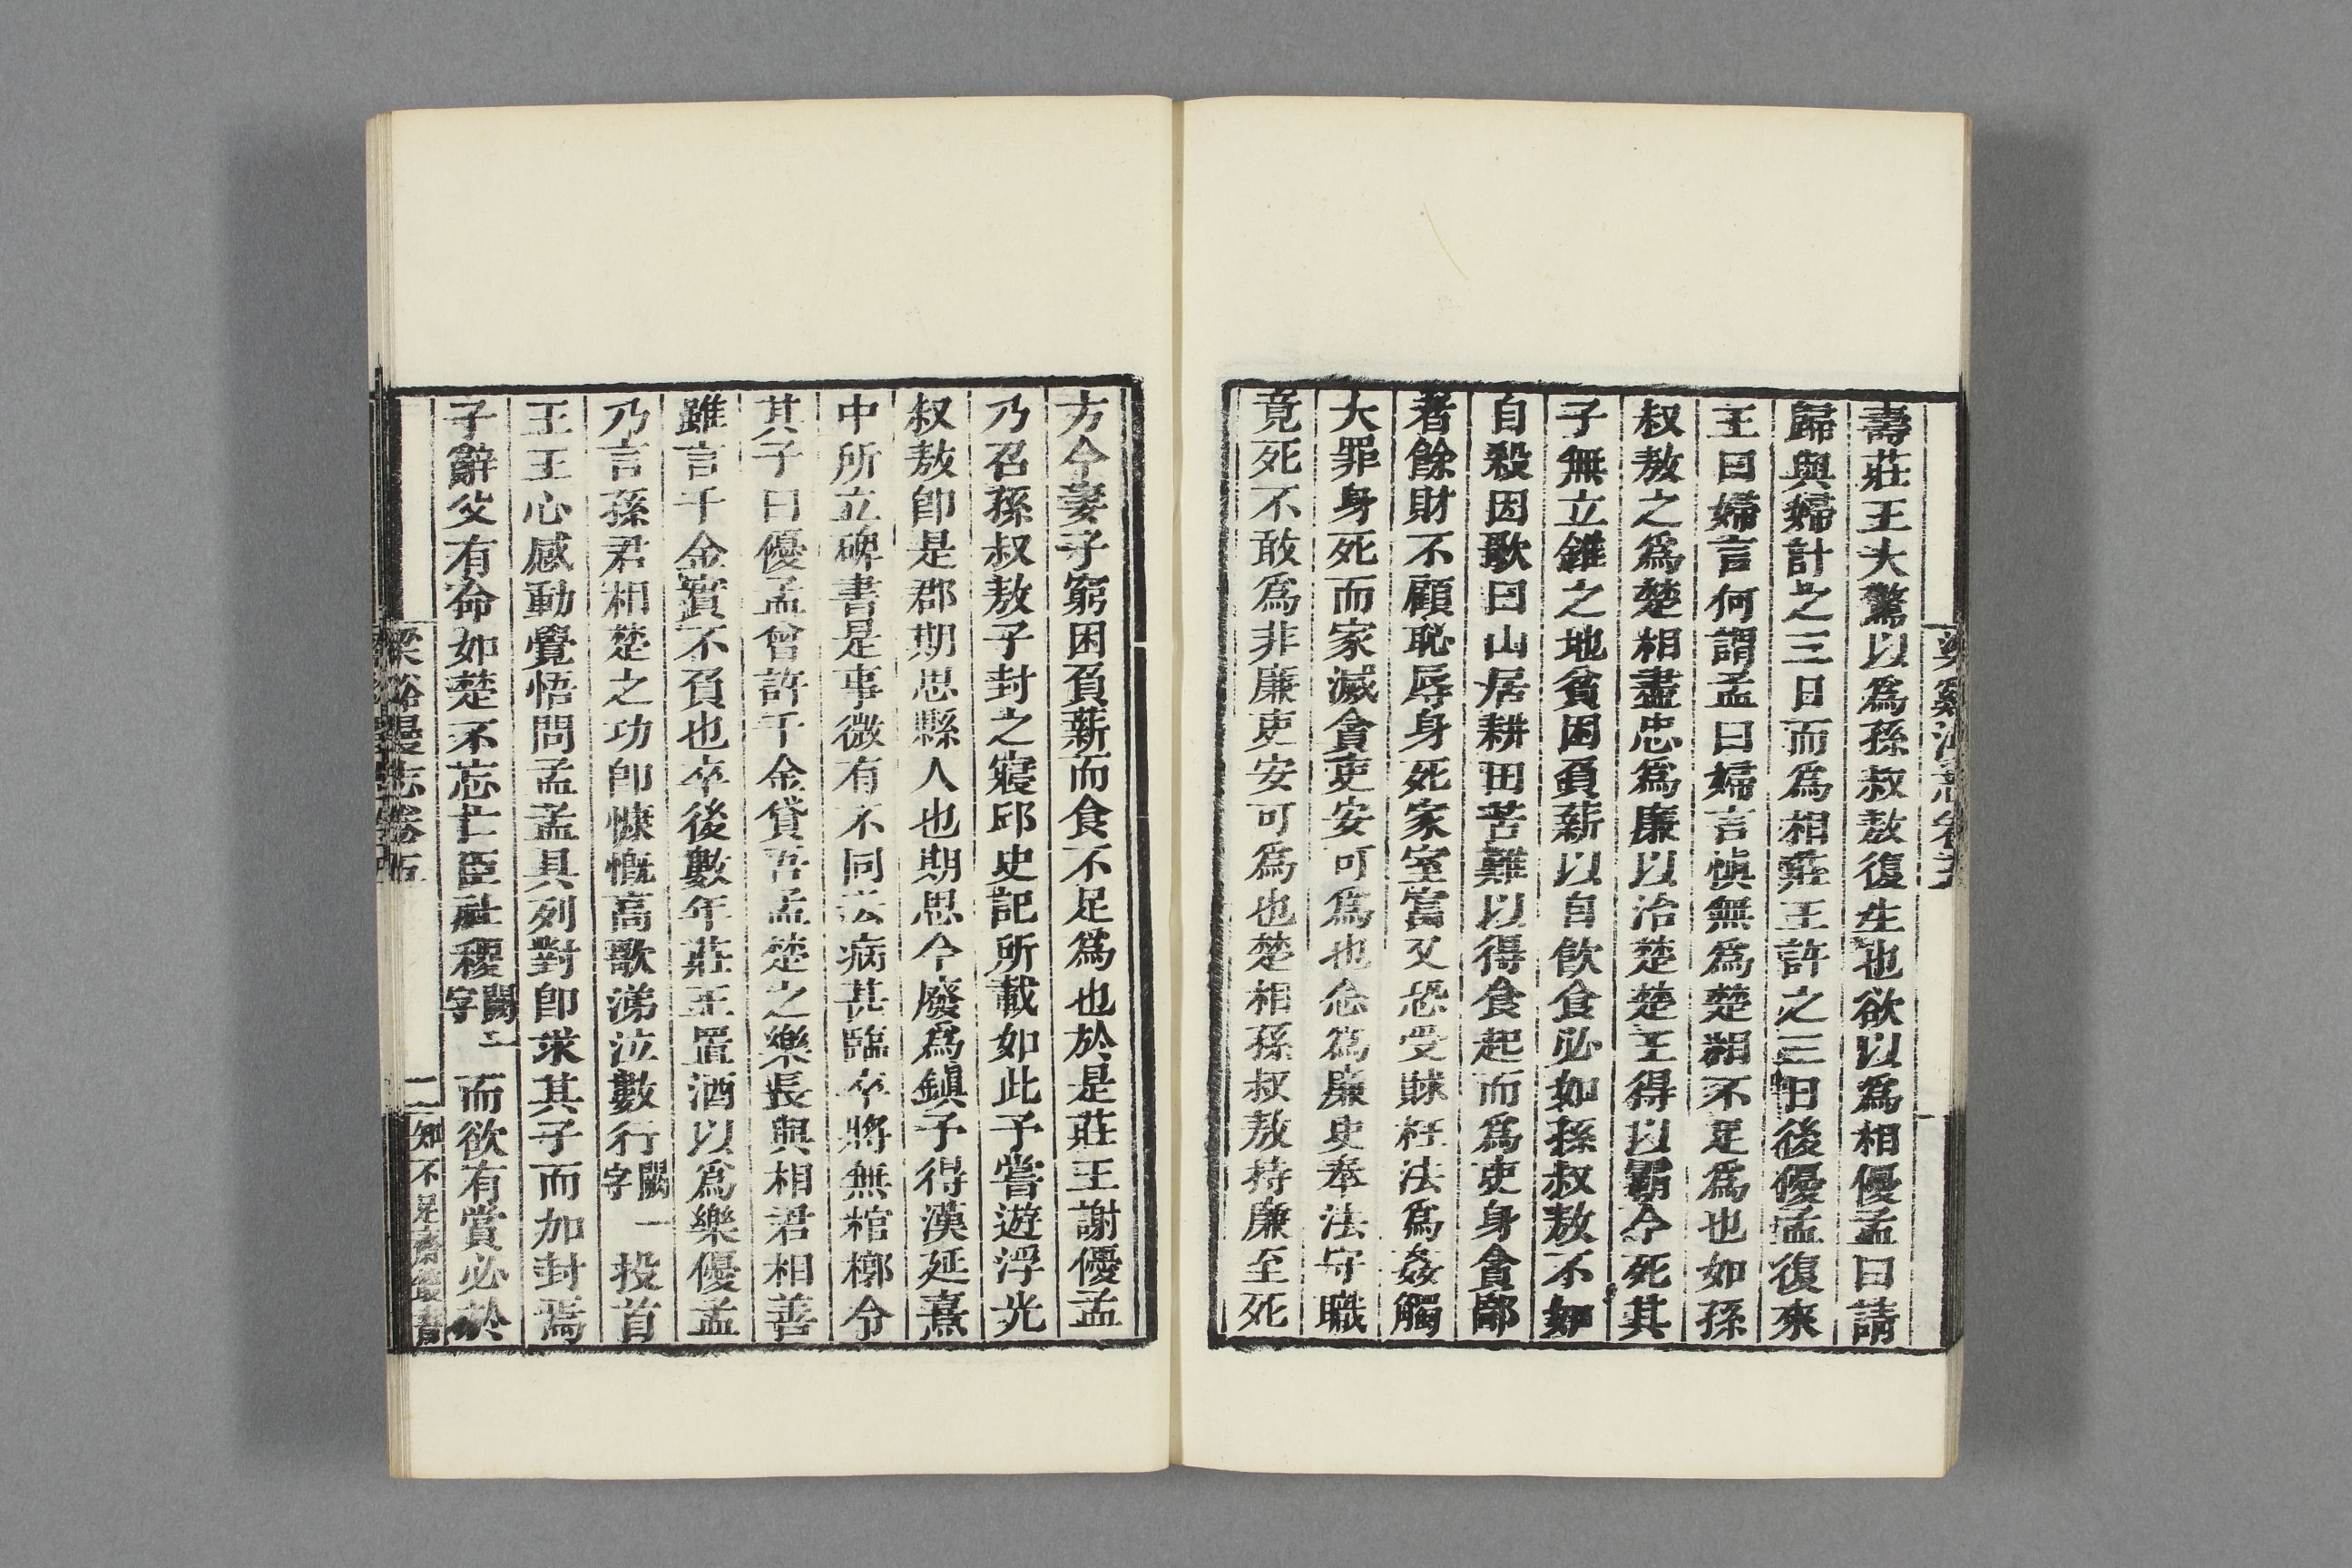 壽莊王大驚以爲孫叔敖復生也欲以爲相優孟曰請
歸與婦計之三日而爲相莊王許之三日後優孟復來
王曰婦言何謂孟曰婦言愼無爲楚相不足爲也如孫
叔敖之爲楚相盡忠爲廉以治楚楚王得以霸今死其
子無立錐之地貧困負薪以自飮食必如孫叔敖不如
自殺因歌曰山居耕田苦難以得食起而爲吏身貪鄙
者餘財不顧恥辱身死家室富又恐受賕枉法爲姦觸
大罪身死而家滅貪吏安可爲也念爲廉吏奉法守職
竟死不敢爲非廉吏安可爲也楚相孫叔敖持廉至死
方今妻子窮困負薪而食不足爲也於是莊王謝優孟
乃召孫叔敖子封之寢邱史記所載如此予嘗遊浮光
叔敖卽是郡期思縣人也期思今廢爲鎭予得漢延熹
中所立碑書是事微有不同云病甚臨卒將無棺槨令
其子曰優孟曾許千金貸吾孟楚之樂長與相君相善
雖言千金實不負也卒後數年莊王置酒以爲樂優孟
乃言孫君相楚之功卽慷慨高歌涕泣數行闕一字投首
王王心感動覺悟問孟孟具列對卽求其子而加封焉
子辭父有命如楚不忘亡臣社稷闕二字而欲有賞必於
梁谿漫志卷五
二
知不足齋叢書